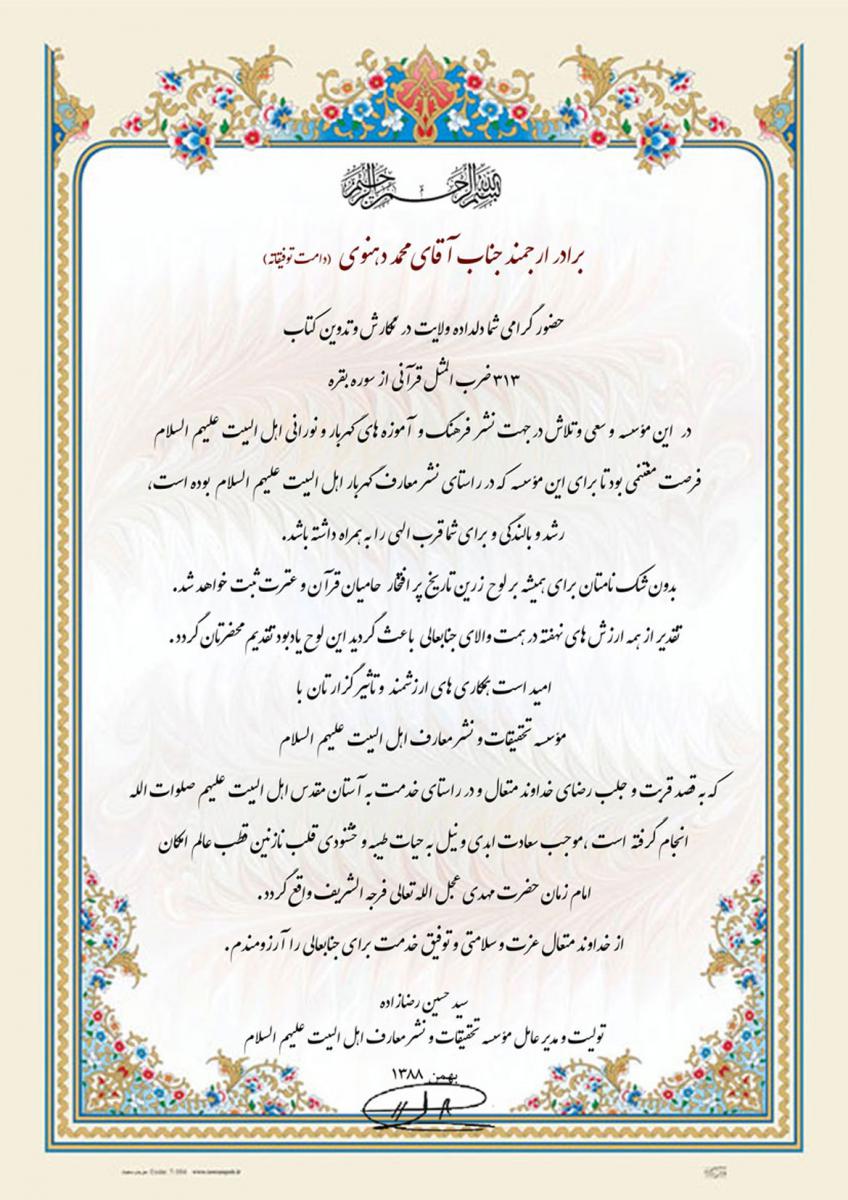 بسم الله الرحمن الرحیم
برادر ارجمند جناب آقای محمد دهنوی (دامت توفیقاته)
حضور گرامی شما دلداده ولایت در نگارش و تدوین کتاب
۳۱۳ ضرب المثل قرآنی از سوره بقره
در این مؤسسه و سعی و تلاش در جهت نشر فرهنگ و آموزه های گهربار و نورانی اهل البیت علیهم السلام
فرصت مغتنمی بود تا برای این مؤسسه که در راستای نشر معارف گهربار اهل البیت علیهم السلام بوده است،
رشد و بالندگی و برای شما قرب الهی را به همراه داشته باشد.
بدون شک نامتان برای همیشه بر لوح زرین تاریخ پر افتخار حامیان قرآن و عترت ثبت خواهد شد.
تقدیر از همه ارزش های نهفته در همت والای جنابعالی باعث گردید این لوح یادبود تقدیم محضرتان گردد.
امید است همکاری های ارزشمند و تاثیر گزارتان با
مؤسسه تحقیقات و نشر معارف اهل البیت علیهم السلام
که به قصد قربت و جلب رضای خداوند متعال و در راستای خدمت به آستان مقدس اهل البیت علیهم صلوات الله
انجام گرفته است ،موجب سعادت ابدی و نیل به حیات طیبه و خشنودی قلب نازنین قطب عالم امکان
امام زمان حضرت مهدی عجل الله تعالی فرجه الشریف واقع گردد.
از خداوند متعال عزت و سلامتی و توفیق خدمت برای جنابعالی را آرزومندم.
سید حسین رضازاده
تولیت و مدیر عامل مؤسسه تحقیقات و نشر معارف اهل البیت علیهم السلام
بهمن ۱۳۸۸